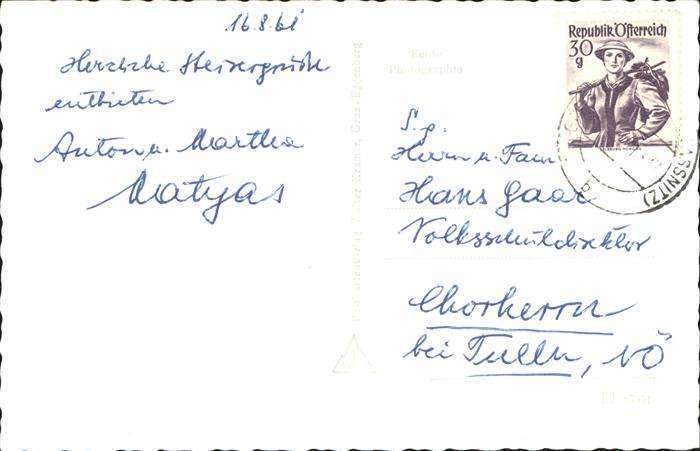 16.8.61
Herzliche Steirergrüße
entbieten
Anton u. Martha
Matyas
Echte
Photographie
Republik Österreich
30
g
SSNITZ)
S.p.
Herrn u. Fam
Hans Gaar
Volksschuldirektor
Chorherrn
bei Tulln, NÖ